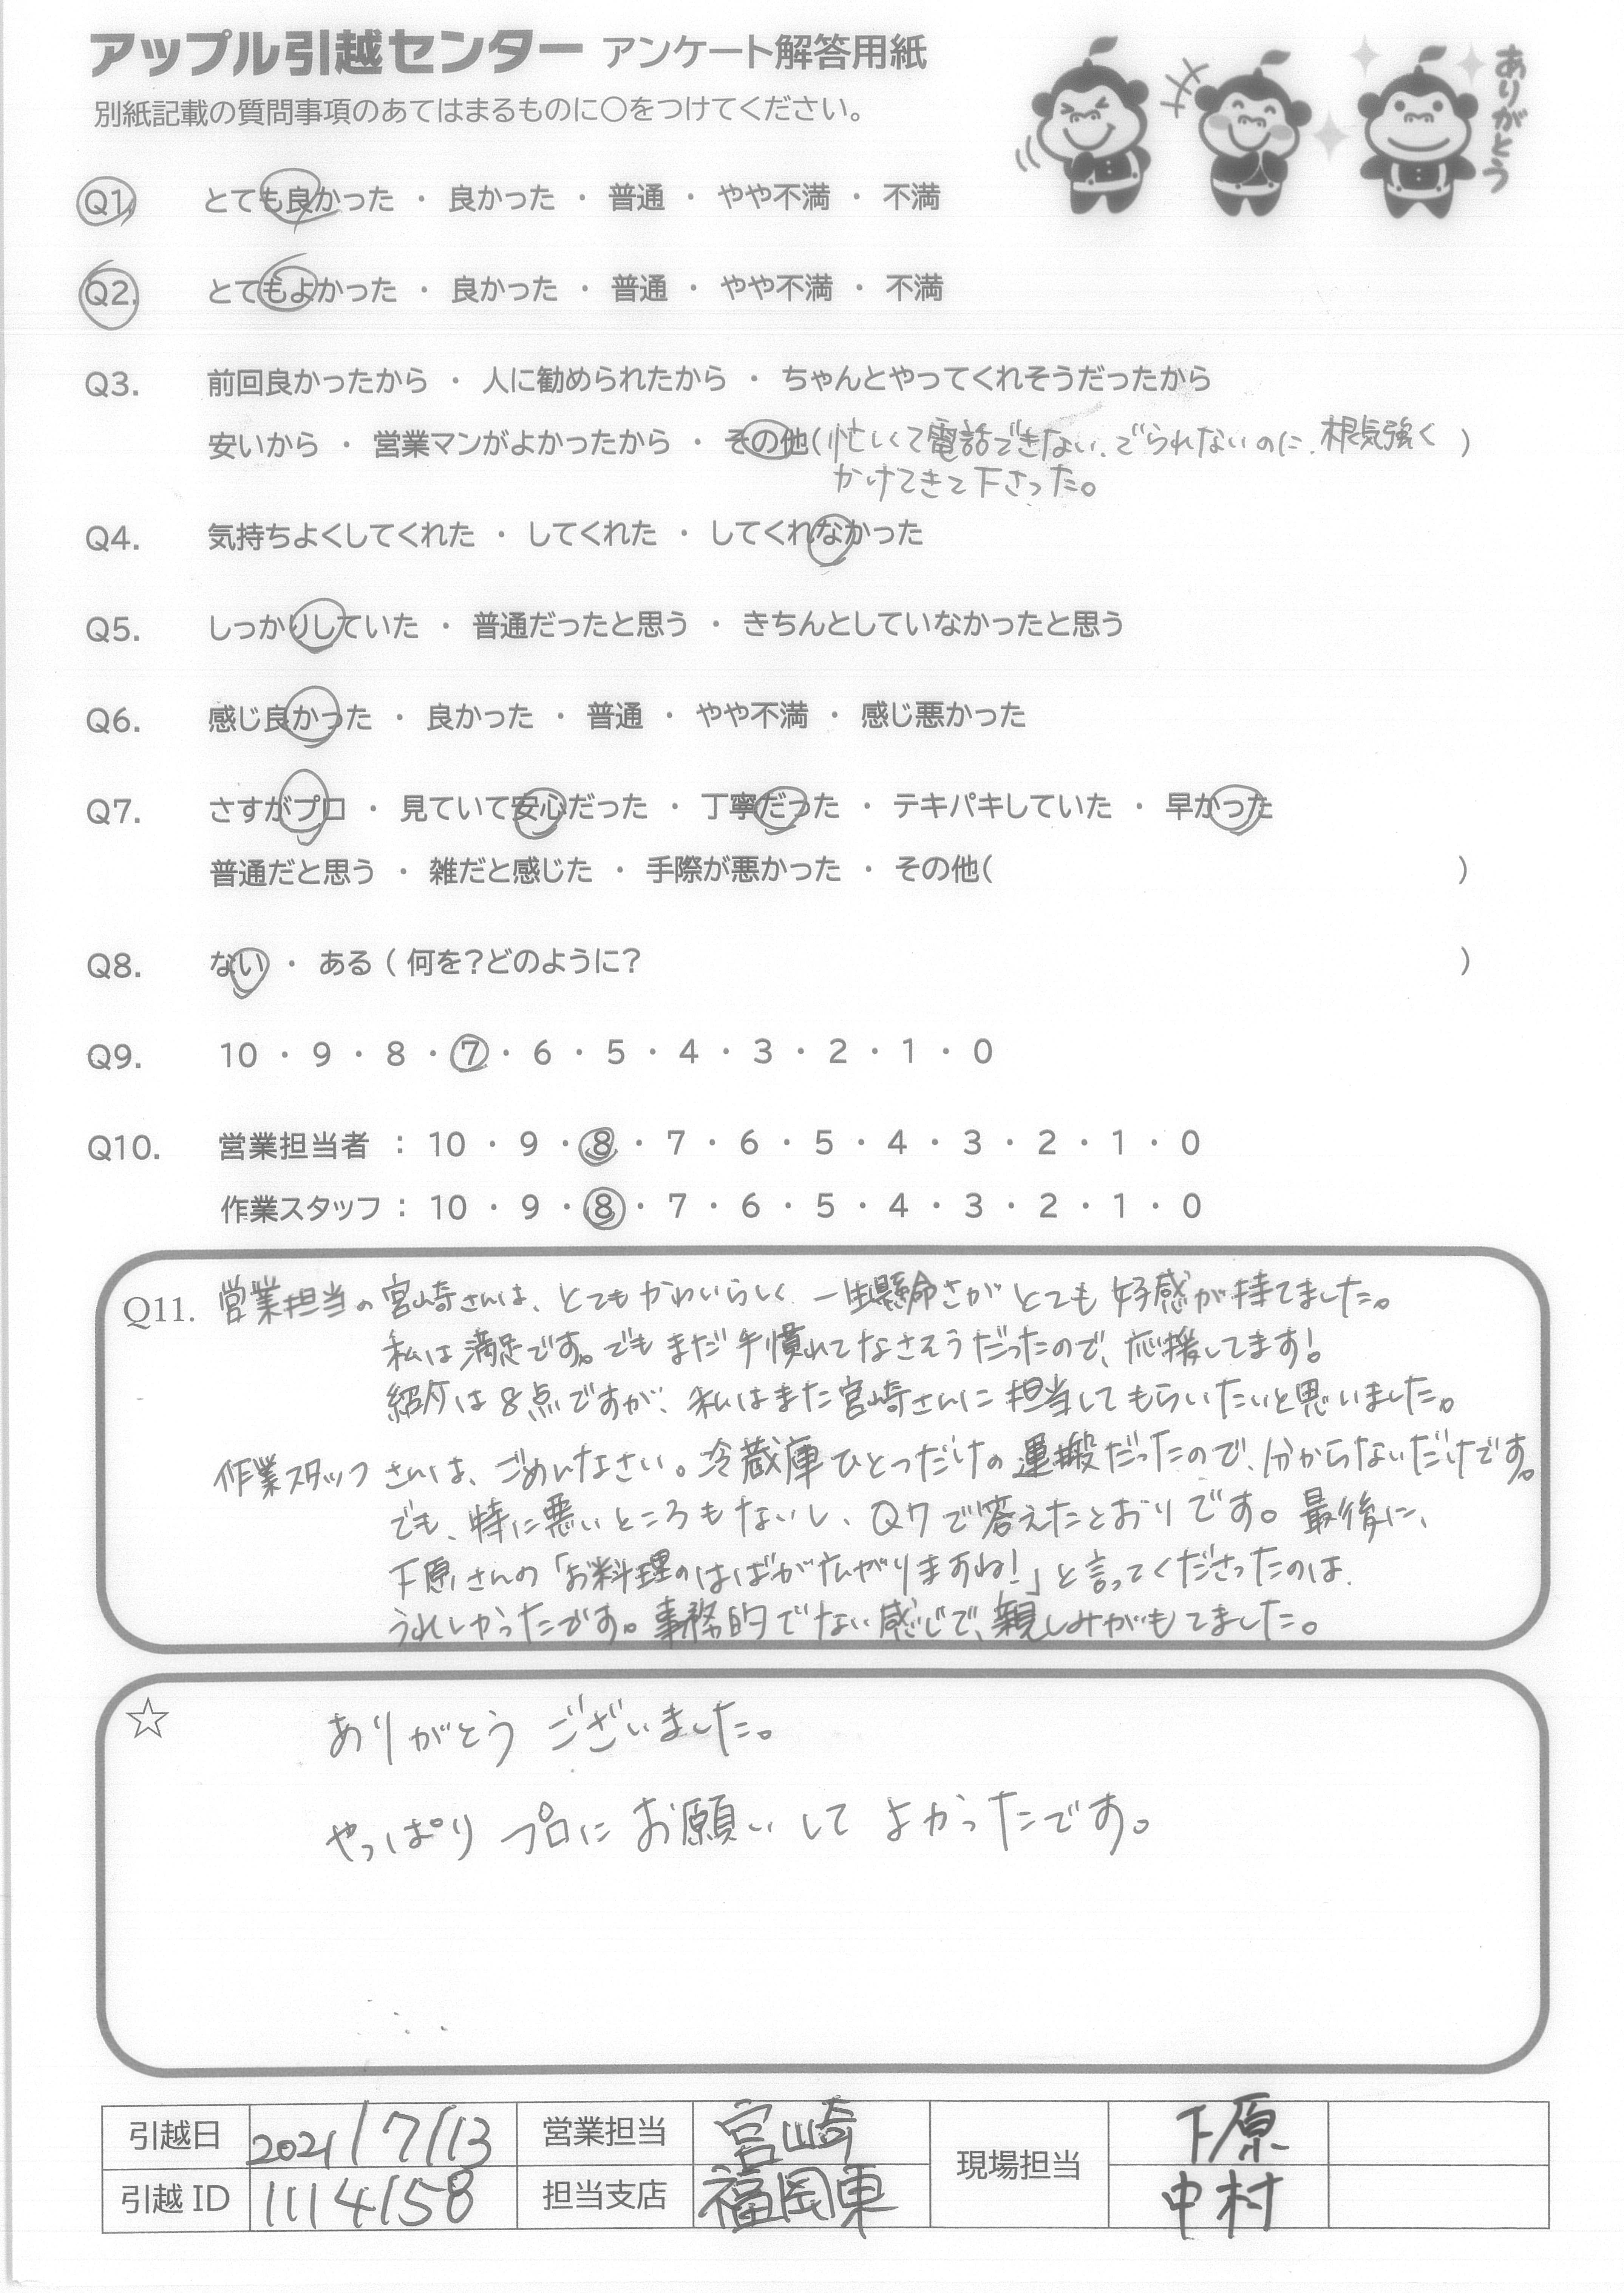 アップル引越センター アンケート解答用紙
別紙記載の質問事項のあてはまるものに〇をつけてください。
ありがとう
Q1. とても良かった ・ 良かった ・ 普通 ・ やや不満 ・ 不満
Q2. とてもよかった ・ 良かった ・ 普通 ・ やや不満 ・ 不満
Q3. 前回良かったから ・ 人に勧められたから ・ ちゃんとやってくれそうだったから
安いから ・ 営業マンがよかったから ・ その他(忙しくて電話できない、でられないのに、根気強く )
かけてきて下さった。
Q4. 気持ちよくしてくれた ・ してくれた ・ してくれなかった
Q5. しっかりしていた ・ 普通だったと思う ・ きちんとしていなかったと思う
Q6. 感じ良かった ・ 良かった ・ 普通 ・ やや不満 ・ 感じ悪かった
Q7. さすがプロ ・ 見ていて安心だった ・ 丁寧だった ・ テキパキしていた ・ 早かった
普通だと思う ・ 雑だと感じた ・ 手際が悪かった ・ その他( )
Q8. ない ・ ある ( 何を?どのように? )
Q9. 10 ・ 9 ・ 8 ・ 7 ・ 6 ・ 5 ・ 4 ・ 3 ・ 2 ・ 1 ・ 0
Q10. 営業担当者 : 10 ・ 9 ・ 8 ・ 7 ・ 6 ・ 5 ・ 4 ・ 3 ・ 2 ・ 1 ・ 0
作業スタッフ : 10 ・ 9 ・ 8 ・ 7 ・ 6 ・ 5 ・ 4 ・ 3 ・ 2 ・ 1 ・ 0
Q11. 営業担当の宮崎さんは、とてもかわいらしく 一生懸命さがとても好感が持てました。
私は満足です。でもまだ手慣れてなさそうだったので、応援してます!
紹介は8点ですが、私はまた宮崎さんに担当してもらいたいと思いました。
作業スタッフさんは、ごめんなさい。冷蔵庫ひとつだけの運搬だったので、分からないだけです。
でも、特に悪いところもないし、Q7で答えたとおりです。最後に、
下原さんの「お料理のはばが広がりますね!」と言ってくださったのは、
うれしかったです。事務的でない感じで、親しみがもてました。
☆ ありがとうございました。
やっぱりプロにお願いしてよかったです。
引越日 2021/7/13 営業担当 宮崎 現場担当 下原
引越ID 1114158 担当支店 福岡東 中村